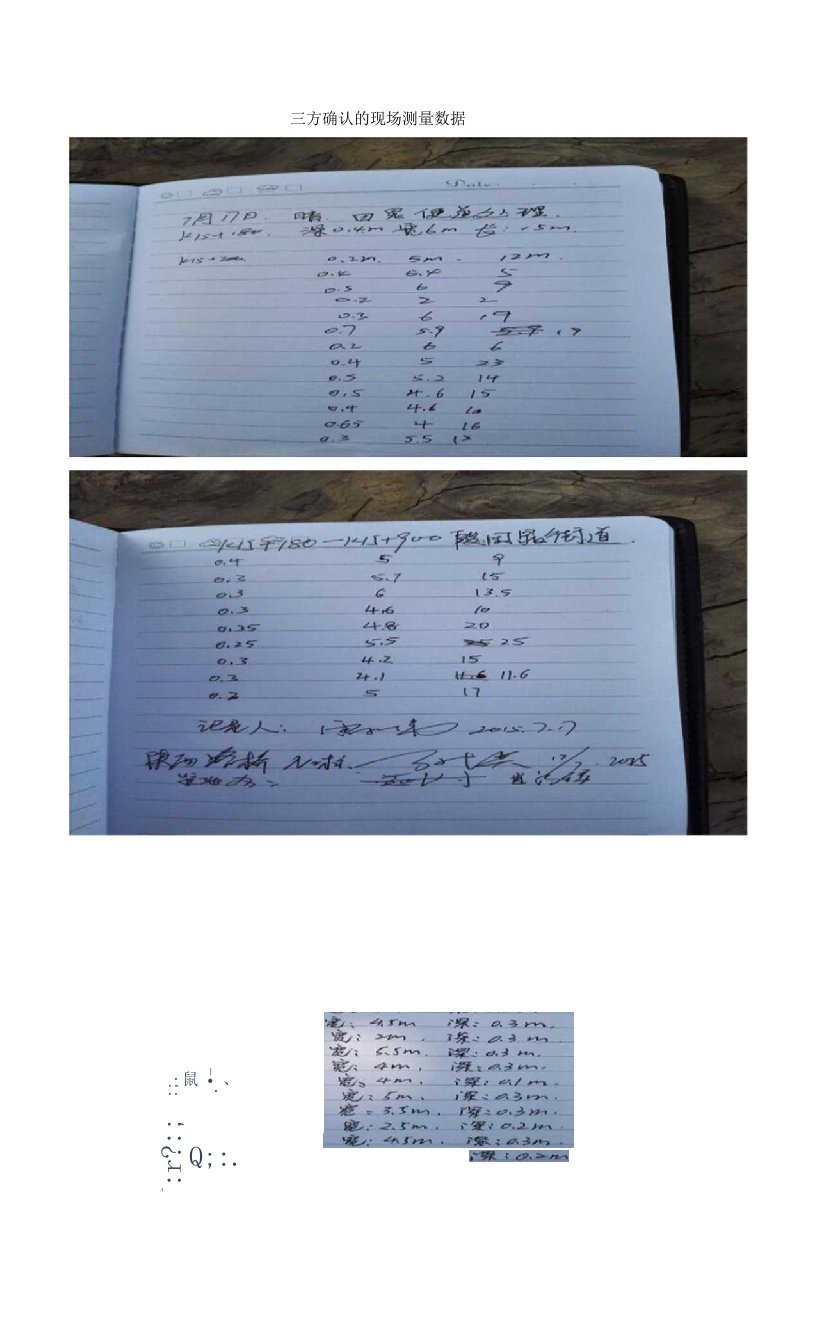 三方确认的现场测量数据
Date.
7月17日. 晴. 田晃便道处理.
K15+180. 深0.4m 宽6m 长:15m.
K15+200 0.2m. 5m. 12m.
0.4 5.4 5
0.5 6 9
0.2 2 2
0.3 6 19
0.7 5.9
0.2 6 6
0.4 5 23
0.5 5.2 14
0.5 4.6 15
0.4 4.6 10
0.65 4 16
0.3 5.5
K15+180—K15+900
0.4 5 9
0.3 5.7 15
0.3 6 13.5
0.3 4.6 10
0.35 4.8 20
0.25 5.5 25
0.3 4.2 15
0.3 4.1 11.6
0.3 5 17
记录人: 2015.7.17
17/7.2015
宽: 4.5m 深: 0.3m.
宽: 2m. 深: 0.3m.
宽: 5.5m. 深: 0.3m.
宽: 4m, 深: 0.3m.
宽: 4m, 深: 0.1m.
宽: 5m, 深: 0.3m.
宽: 3.5m, 深: 0.3m.
宽: 2.5m, 深: 0.2m.
宽: 4.5m. 深: 0.3m.
深: 0.2m
鼠
Q;:.